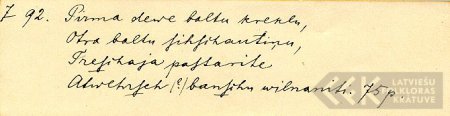 7 92. Pirma dewe baltu kreklu,
Otra baltu sihschautiņu,
Treschaja pastarite
Atwehrsch (?) banschu wilnaniti. 75 p
LATVIEŠU
FOLKLORAS
KRĀTUVE